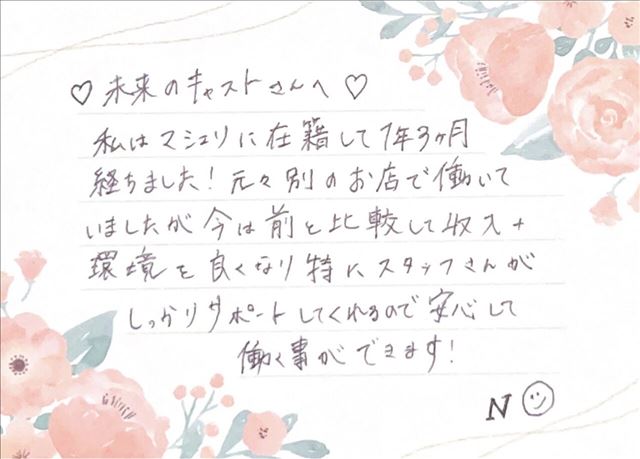 ♡ 未来のキャストさんへ ♡
私はマシェリに在籍して1年3ヶ月
経ちました！元々別のお店で働いて
いましたが今は前と比較して収入+
環境も良くなり特にスタッフさんが
しっかりサポートしてくれるので安心して
働く事ができます！
N